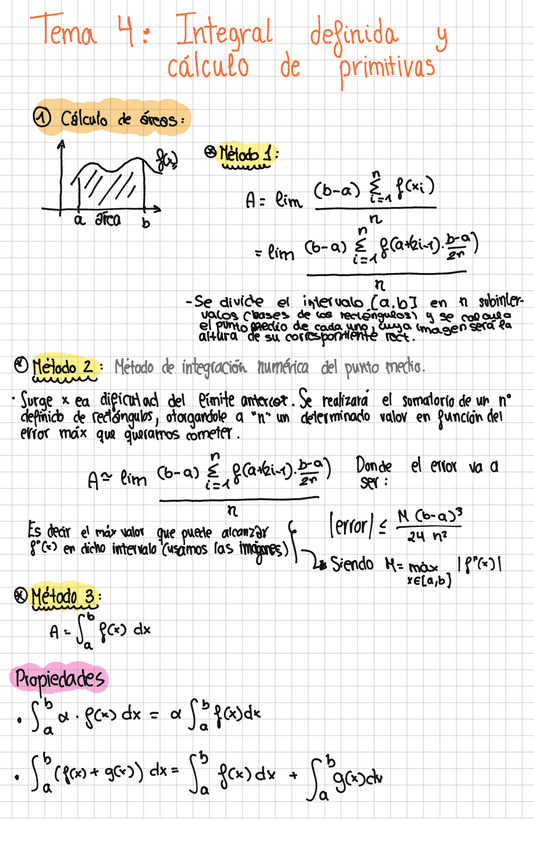 Tema 4: Integral definida y
cálculo de primitivas
① Cálculo de áreas:
f(x)
a área b
⊛ Método 1:
A = lim (b-a) Σ_{i=1}^{n} f(xi) / n
= lim (b-a) Σ_{i=1}^{n} f(a+(2i-1)·(b-a)/2n) / n
- Se divide el intervalo [a,b] en n subinter-
valos (bases de los rectángulos) y se calcula
el punto medio de cada uno, cuya imagen será la
altura de su correspondiente rect.
⊛ Método 2: Método de integración numérica del punto medio.
· Surge x ea dificultad del límite anterior. Se realizará el sumatorio de un nº
definido de rectángulos, otorgandole a "n" un determinado valor en función del
error máx que queramos cometer.
A ≃ lim (b-a) Σ_{i=1}^{n} f(a+(2i-1)·(b-a)/2n) / n
Donde el error va a
ser:
|error| ≤ M(b-a)³ / 24 n²
Es decir el máx valor que puede alcanzar
f"(x) en dicho intervalo (usamos las imágenes)
Siendo M = máx |f"(x)|
x∈[a,b]
⊛ Método 3:
A = ∫_a^b f(x) dx
Propiedades
· ∫_a^b α · f(x) dx = α ∫_a^b f(x) dx
· ∫_a^b (f(x) + g(x)) dx = ∫_a^b f(x) dx + ∫_a^b g(x) dx